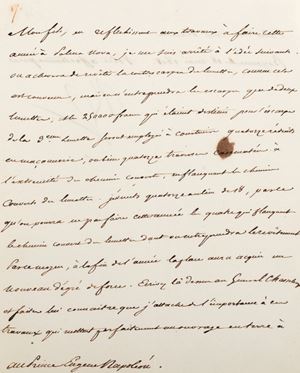 Mon fils, en réfléchissant aux travaux à faire cette
année à Palma Nova, je me suis arrêté à l'idée suivante.
on achevera de revêtir la contrescarpe des lunettes, comme cela
est convenu, mais on n'entreprendra les escarpes que de deux
lunettes, et 25000 francs qui étaient destinés pour l'escarpe
de la 3eme lunette seront employés à construire quatorze réduits
en maçonnerie, ou bien quatorze traverses casematées à
l'extrémité du chemin couvert, et flanquant le chemin
couvert des lunettes. je dis quatorze au lieu de 18, parce
qu'on pourra ne pas faire cette année les quatre qui flanquent
le chemin couvert des lunettes dont on entreprendra le revêtement.
Par ce moyen, à la fin de l'année la place aura acquis un
nouveau dégré de force. Ecrivez là dessus au Général Chasseloup
et faites lui connaitre que j'attache de l'importance à ces
travaux qui mettent parfaitement un ouvrage en terre à
au Prince Eugène Napoléon.